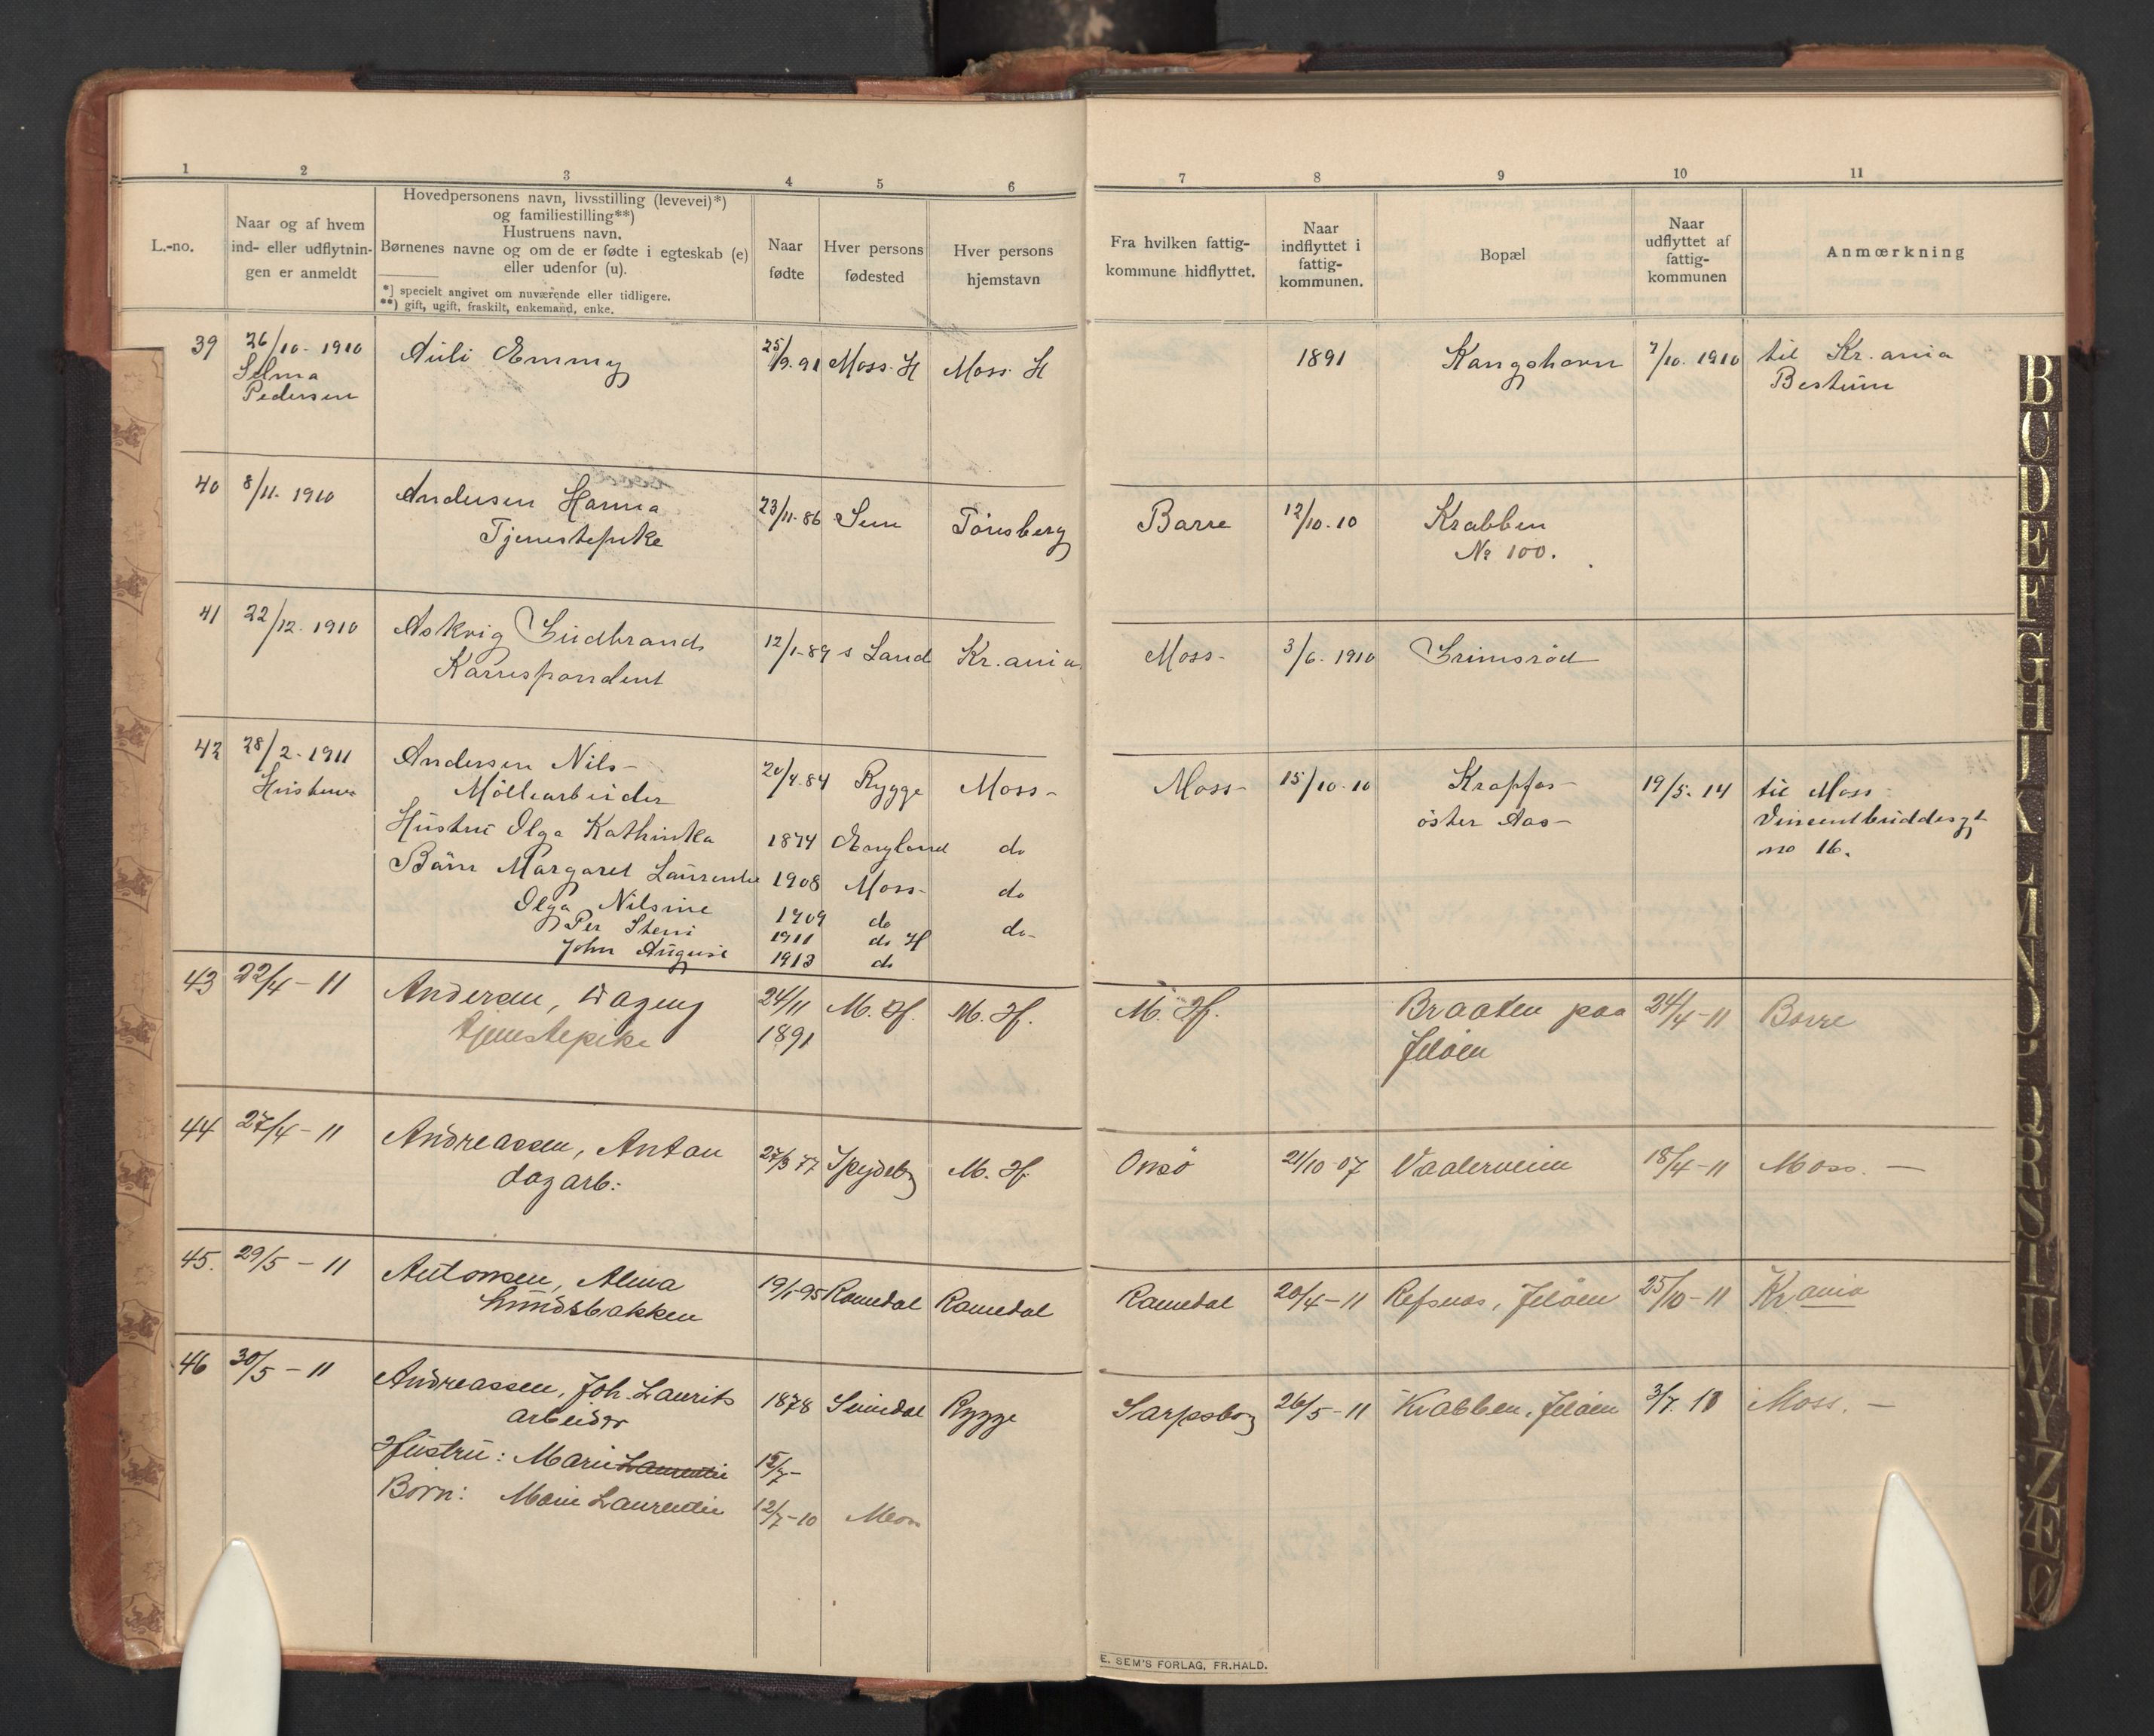 1 2 3 4 5 6 7 8 9 10 11
L.-no.
Naar og af hvem
ind- eller udflytnin-
gen er anmeldt
Hovedpersonens navn, livsstilling (levevei)*)
og familiestilling**)
Hustruens navn.
Børnenes navne og om de er fødte i egteskab (e)
eller udenfor (u).
*) specielt angivet om nuværende eller tidligere.
**) gift, ugift, fraskilt, enkemand, enke.
Naar
fødte
Hver persons
fødested
Hver persons
hjemstavn
Fra hvilken fattig-
kommune hidflyttet.
Naar
indflyttet i
fattig-
kommunen.
Bopæl
Naar
udflyttet af
fattig-
kommunen
Anmærkning
39 26/10. 1910 Auli Emmy 25/9.91 Moss. H Moss. H 1891 Kongshavn 7/10. 1910 til Kr.ania
Selma Bestum
Pedersen
40 8/11. 1910 Andersen Hanna 23/11.86 Sem Tönsberg Borre 12/10.10 Krabben
Tjenestepike No 100.
41 22/12. 1910 Askvig Gudbrand 12/1.89 s Land Kr.ania Moss- 3/6. 1910 Grimsröd
Korrespondent
42 28/2. 1911 Andersen Nils- 20/4.84 Rygge Moss- Moss- 15/10.10 Krapfos- 19/5. 14 til Moss-
Hustuen Möllearbeider öster Aas- Vincentbuddesgt
no 16.
Hustru Olga Kathinka 1874 England do
Börn Margaret Laurentie 1908 Moss- do
Olga Nilsine 1909 do do-
Per Steni 1911 do H
John August 1913 do
43 22/4 – 11 Andersen, Dagny 24/11 M. Hf. M. Hf. M. Hf. Braaten paa 24/4-11 Borre
tjenestepike 1891 Jelöen
44 27/4 – 11 Andreassen, Anton 27/3 77 Spydebg M. Hf. Onsö 21/10-07 Vaalerveien 18/4-11 Moss. —
dagarb:
45. 29/5 – 11 Antonsen, Alma 19/1-95 Romedal Romedal Romedal 20/4-11 Refsnes, Jelöen 25/10-11 Kr.ania
Lundsbakken
46 30/5 – 11 Andreassen, Joh. Laurits 1878 Svindal Rygge Sarpsborg 26/5-11 Krabben, Jelöen 3/7. 18 Moss. —
arbeider
Hustru: Marie Laurentie 15/7-
Börn: Marie Laurentie 12/7-10 Moss
E. SEM'S FORLAG, FR.HALD.
B
C
D
E
F
G
H
J
K
L
M
N
O
P
Q
R
S
T
U
W
Y
Z
Æ
Ø